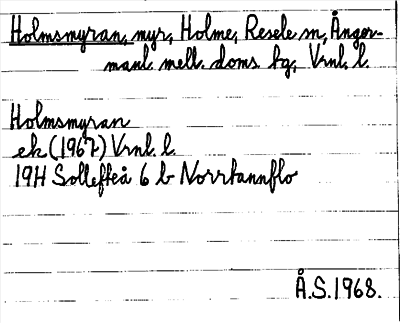 Holmsmyran, myr, Holme, Resele sn, Ånger-
manl. mell. doms. hg, Vrnl. l.
Holmsmyran
ek (1967) Vrnl. l.
19H Sollefteå 6 b Norrtannflo
Å.S. 1968.